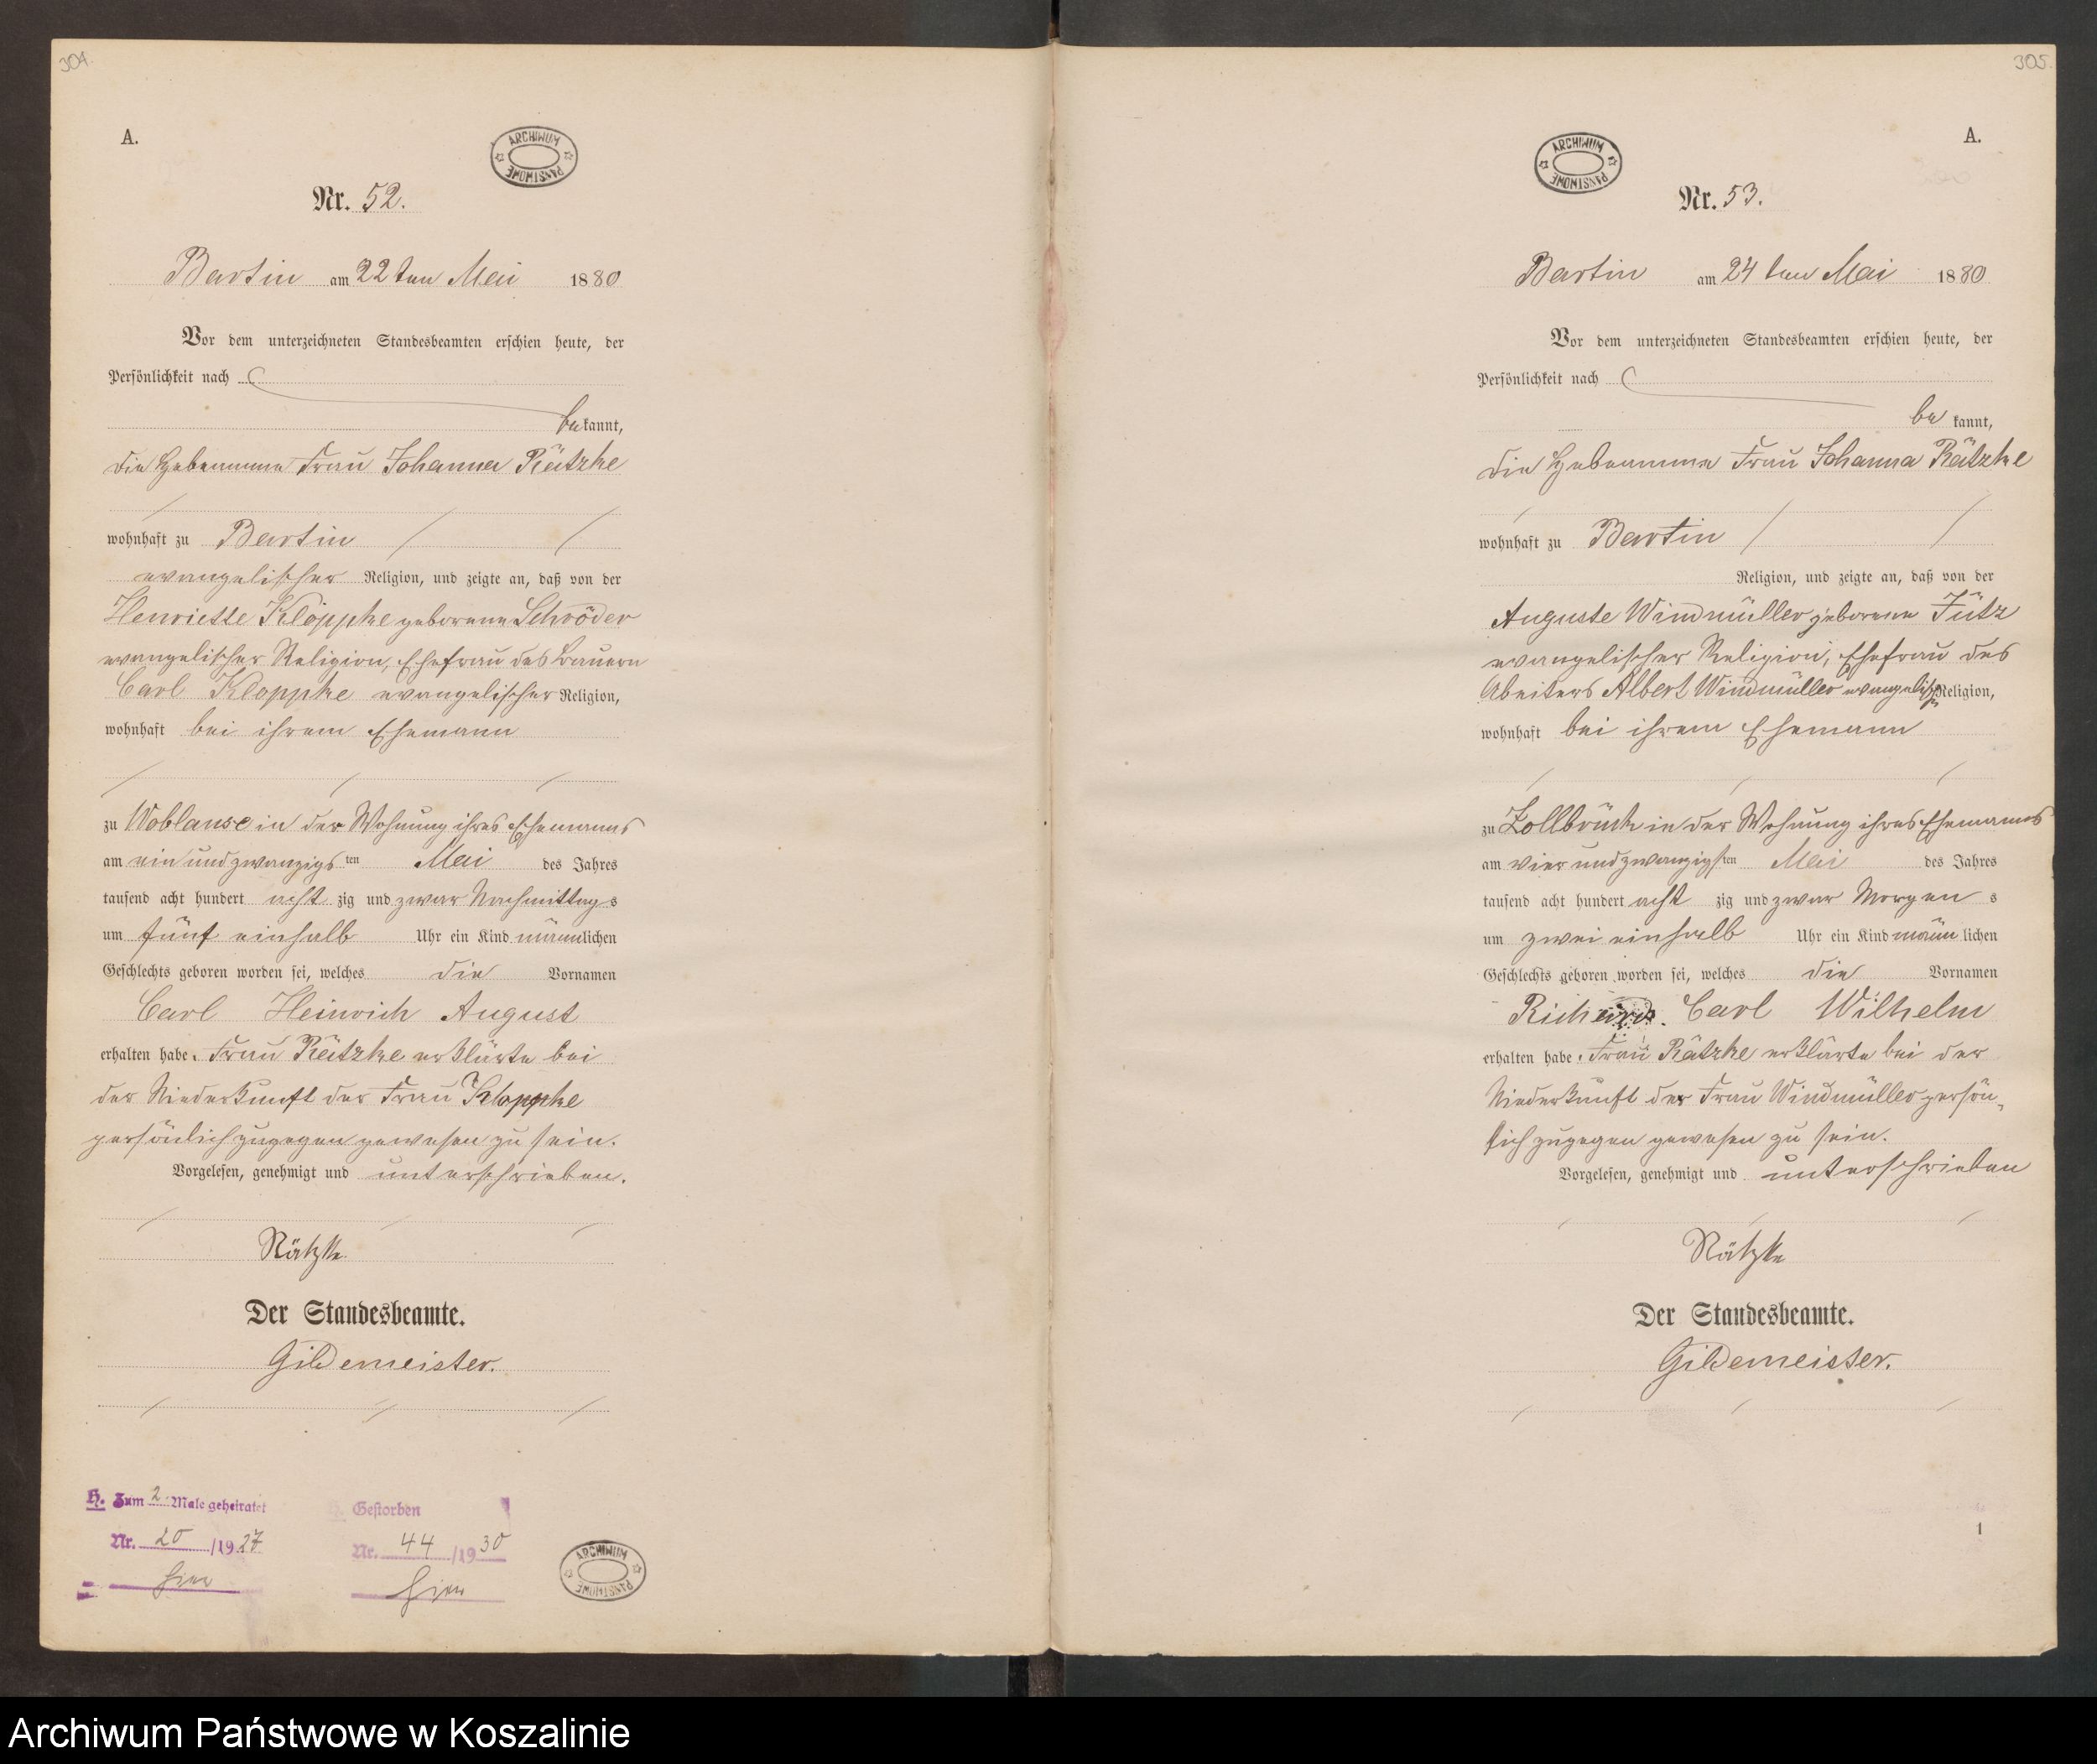 304.
A.
ARCHIWUM PAŃSTWOWE
Nr. 52.
Bartin am 22ten Mai 1880
Vor dem unterzeichneten Standesbeamten erschien heute, der
Persönlichkeit nach
bekannt,
die Hebeamme Frau Johanna Rätzke
wohnhaft zu Bartin
evangelischer Religion, und zeigte an, daß von der
Henriette Klöppke geborene Schröder
evangelischer Religion, Ehefrau des Bauern
Carl Kloppke evangelischer Religion,
wohnhaft bei ihrem Ehemann
zu Woblanse in der Wohnung ihres Ehemanns
am ein und zwanzigsten Mai des Jahres
tausend acht hundert achtzig und zwar Nachmittags
um fünf einhalb Uhr ein Kind männlichen
Geschlechts geboren worden sei, welches die Vornamen
Carl Heinrich August
erhalten habe. Frau Rätzke erklärte bei
der Niederkunft der Frau Kloppke
persönlich zugegen gewesen zu sein.
Vorgelesen, genehmigt und unterschrieben.
Rätzke
Der Standesbeamte.
Gildemeister.
H. Zum 2. Male geheiratet
Nr. 20/1927
hier
H. Gestorben
Nr. 44/1930
hier
ARCHIWUM PAŃSTWOWE
305.
A.
ARCHIWUM PAŃSTWOWE
Nr. 53.
Bartin am 24ten Mai 1880
Vor dem unterzeichneten Standesbeamten erschien heute, der
Persönlichkeit nach
bekannt,
die Hebeamme Frau Johanna Rätzke
wohnhaft zu Bartin
Religion, und zeigte an, daß von der
Auguste Windmüller geborene Fütz
evangelischer Religion, Ehefrau des
Abeiters Albert Windmüller evangelischer Religion,
wohnhaft bei ihrem Ehemann
zu Zollbrück in der Wohnung ihres Ehemanns
am vier und zwanzigsten Mai des Jahres
tausend acht hundert achtzig und zwar Morgens
um zwei einhalb Uhr ein Kind männlichen
Geschlechts geboren worden sei, welches die Vornamen
Richard Carl Wilhelm
erhalten habe. Frau Rätzke erklärte bei der
Niederkunft der Frau Windmüller persön-
lich zugegen gewesen zu sein.
Vorgelesen, genehmigt und unterschrieben
Rätzke
Der Standesbeamte.
Gildemeister.
1
Archiwum Państwowe w Koszalinie